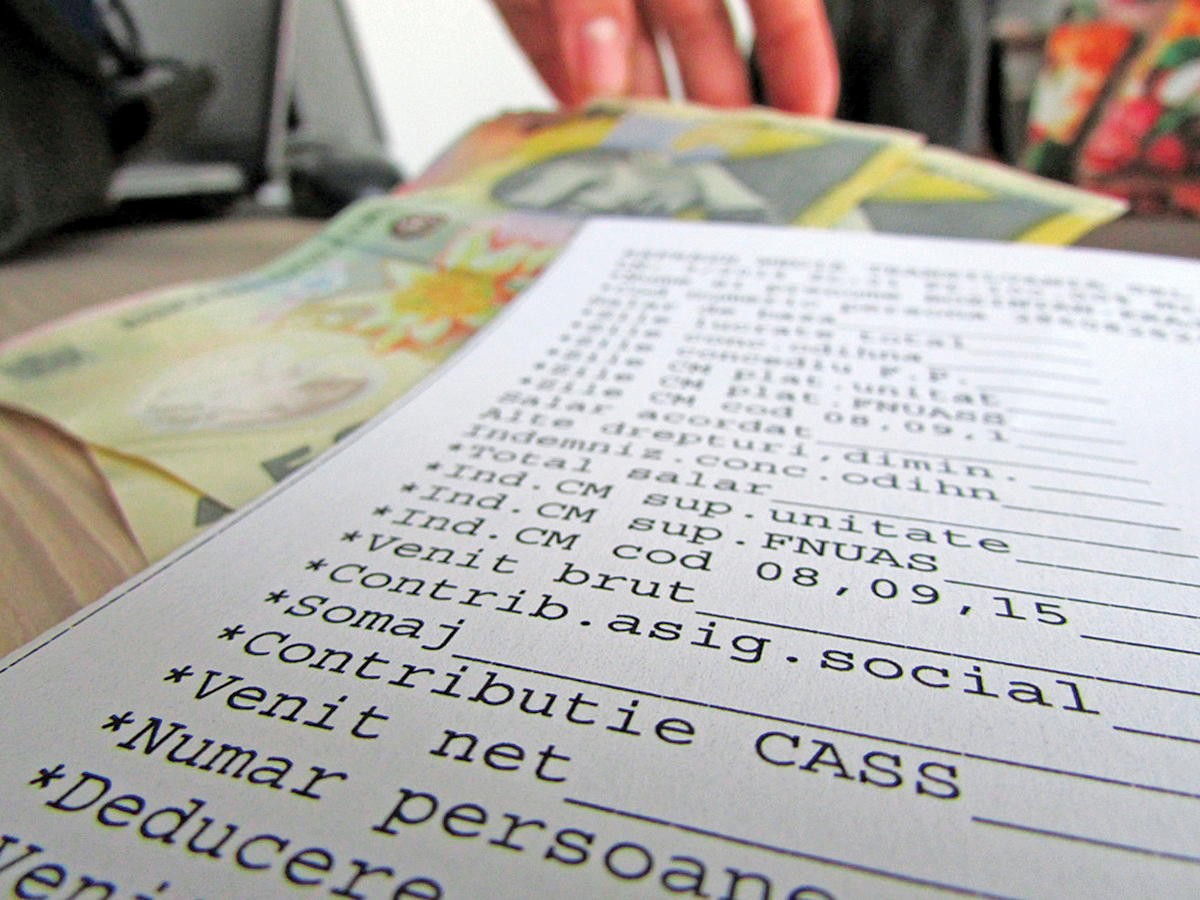 Salar de baza
*Zile lucrate total
*Zile conc.odihna
*Zile concediu f.p.
*Zile CM plat.unitat
*Zile CM plat.FNUASS
*Zile CM cod 08,09,1
Salar acordat
Alte drepturi,dimin.
Indemniz.conc.odihn
*Total salar
*Ind.CM sup.unitate
*Ind.CM sup.FNUAS
*Ind.CM cod 08,09,15
*Venit brut
*Contrib.asig.social
*Somaj
*Contributie CASS
*Venit net
*Numar persoane
*Deducere